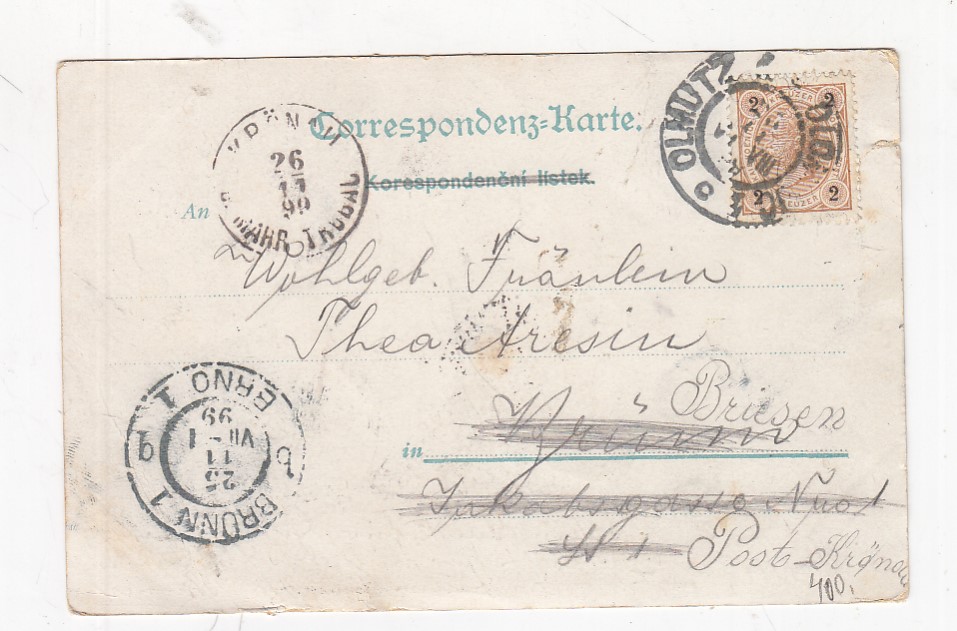 Correspondenz-Karte.
Korespondenční lístek.
KRÖNAU
26
11
99
MÄHR. TRÜBAU
OLMÜTZ
2 2
2 2
KREUZER
An
Wohlgeb. Fräulein
Thea Aresin
Briesen
in Brünn
Jakobsgasse Nro 1
St 1 Post Krönau
400.
BRÜNN 1
25
11
VII - 1
99
BRNO 1
b b